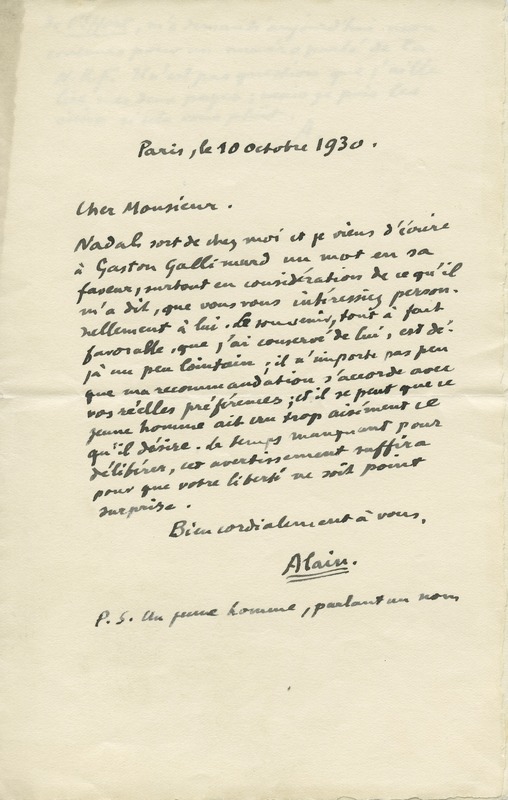 Paris, le 10 octobre 1930.
Cher Monsieur.
Nadal sort de chez moi et je viens d'écrire
à Gaston Gallimard un mot en sa
faveur, surtout en considérations de ce qu'il
m'a dit, que vous vous intéressiez person-
nellement à lui. Le souvenir, tout à fait
favorable, que j'ai conservé de lui, est dé-
jà un peu lointain ; il n'importe pas peu
que ma recommandation s'accorde avec
vos réelles préférences ; et il se peut que ce
jeune homme ait cru trop aisément ce
qu'il désire. Le temps manquant pour
délibérer, cet avertissement suffira
pour que votre liberté ne soit point
surprise.
Bien cordialement à vous,
Alain.
P. S. Un jeune homme, parlant au nom